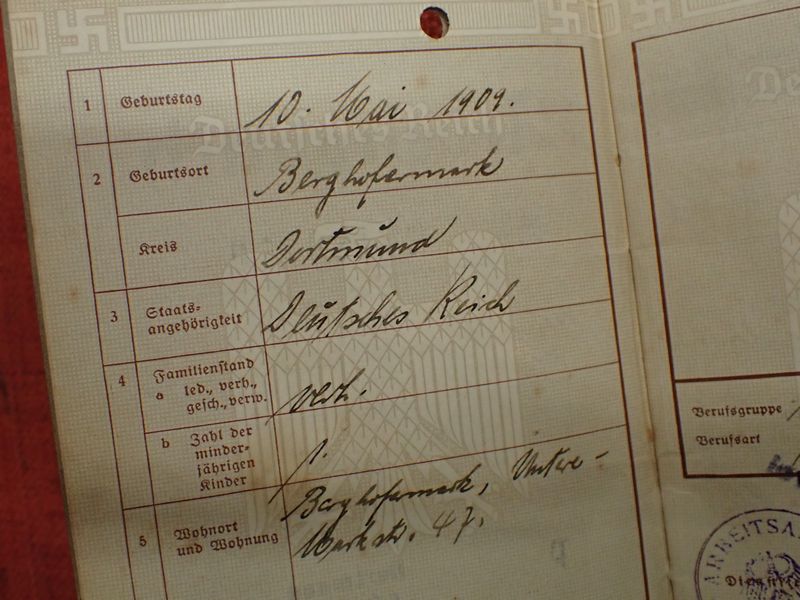 Deutsches Reich
1 Geburtstag 10. Mai 1909.
2 Geburtsort Berghofermark
Kreis Dortmund
3 Staats-
angehörigkeit Deutsches Reich
4 Familienstand
a led., verh.,
gesch., verw. verh.
b Zahl der
minder-
jährigen
Kinder 1.
5 Wohnort
und Wohnung Berghofermark, Untere-
Markstr. 47.
De
Berufsgruppe
Berufsart
ARBEITSA